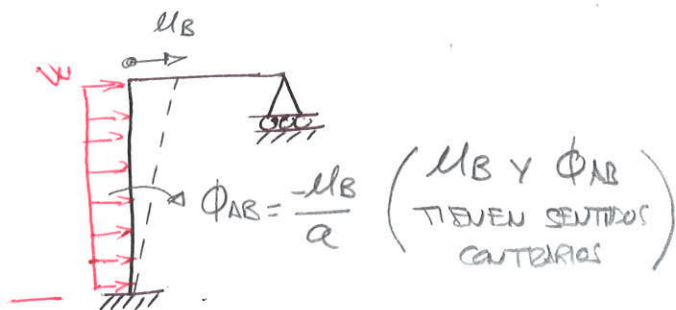 μB
w
ϕAB = -μB / a ( μB Y ϕAB
TIENEN SENTIDOS
CONTRARIOS )